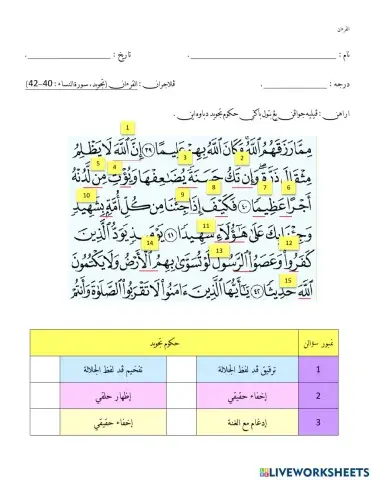 القرءان
نام : ____________________. تاريخ : ____________________.
درجه : ____________________. ڤلاجرن : القرءان (تجويد، سورة النساء : 40-42)
اراهن : ڤيليه جواڤن يڠ بتول باݢي حكوم تجويد دباوه اين.
1
مِمَّا رَزَقَهُمُ ٱللَّهُ وَكَانَ ٱللَّهُ بِهِمْ عَلِيمًا ٣٩ إِنَّ ٱللَّهَ لَا يَظْلِمُ
5 4 3 2
مِثْقَالَ ذَرَّةٍ وَإِن تَكُ حَسَنَةً يُضَٰعِفْهَا وَيُؤْتِ مِن لَّدُنْهُ
10 9 8 7 6
أَجْرًا عَظِيمًا ٤٠ فَكَيْفَ إِذَا جِئْنَا مِن كُلِّ أُمَّةٍۭ بِشَهِيدٍ
11
وَجِئْنَا بِكَ عَلَىٰ هَٰٓؤُلَآءِ شَهِيدًا ٤١ يَوْمَئِذٍ يَوَدُّ ٱلَّذِينَ
14 13 12
كَفَرُوا۟ وَعَصَوُا۟ ٱلرَّسُولَ لَوْ تُسَوَّىٰ بِهِمُ ٱلْأَرْضُ وَلَا يَكْتُمُونَ
15
ٱللَّهَ حَدِيثًا ٤٢ يَٰٓأَيُّهَا ٱلَّذِينَ ءَامَنُوا۟ لَا تَقْرَبُوا۟ ٱلصَّلَوٰةَ وَأَنتُمْ
نمبور سؤالن حكوم تجويد
1 ترقيق قد لفظ الجلالة تفخيم قد لفظ الجلالة
2 إخفاء حقيقي إظهار حلقي
3 إدغام مع الغنة إخفاء حقيقي
LIVEWORKSHEETS